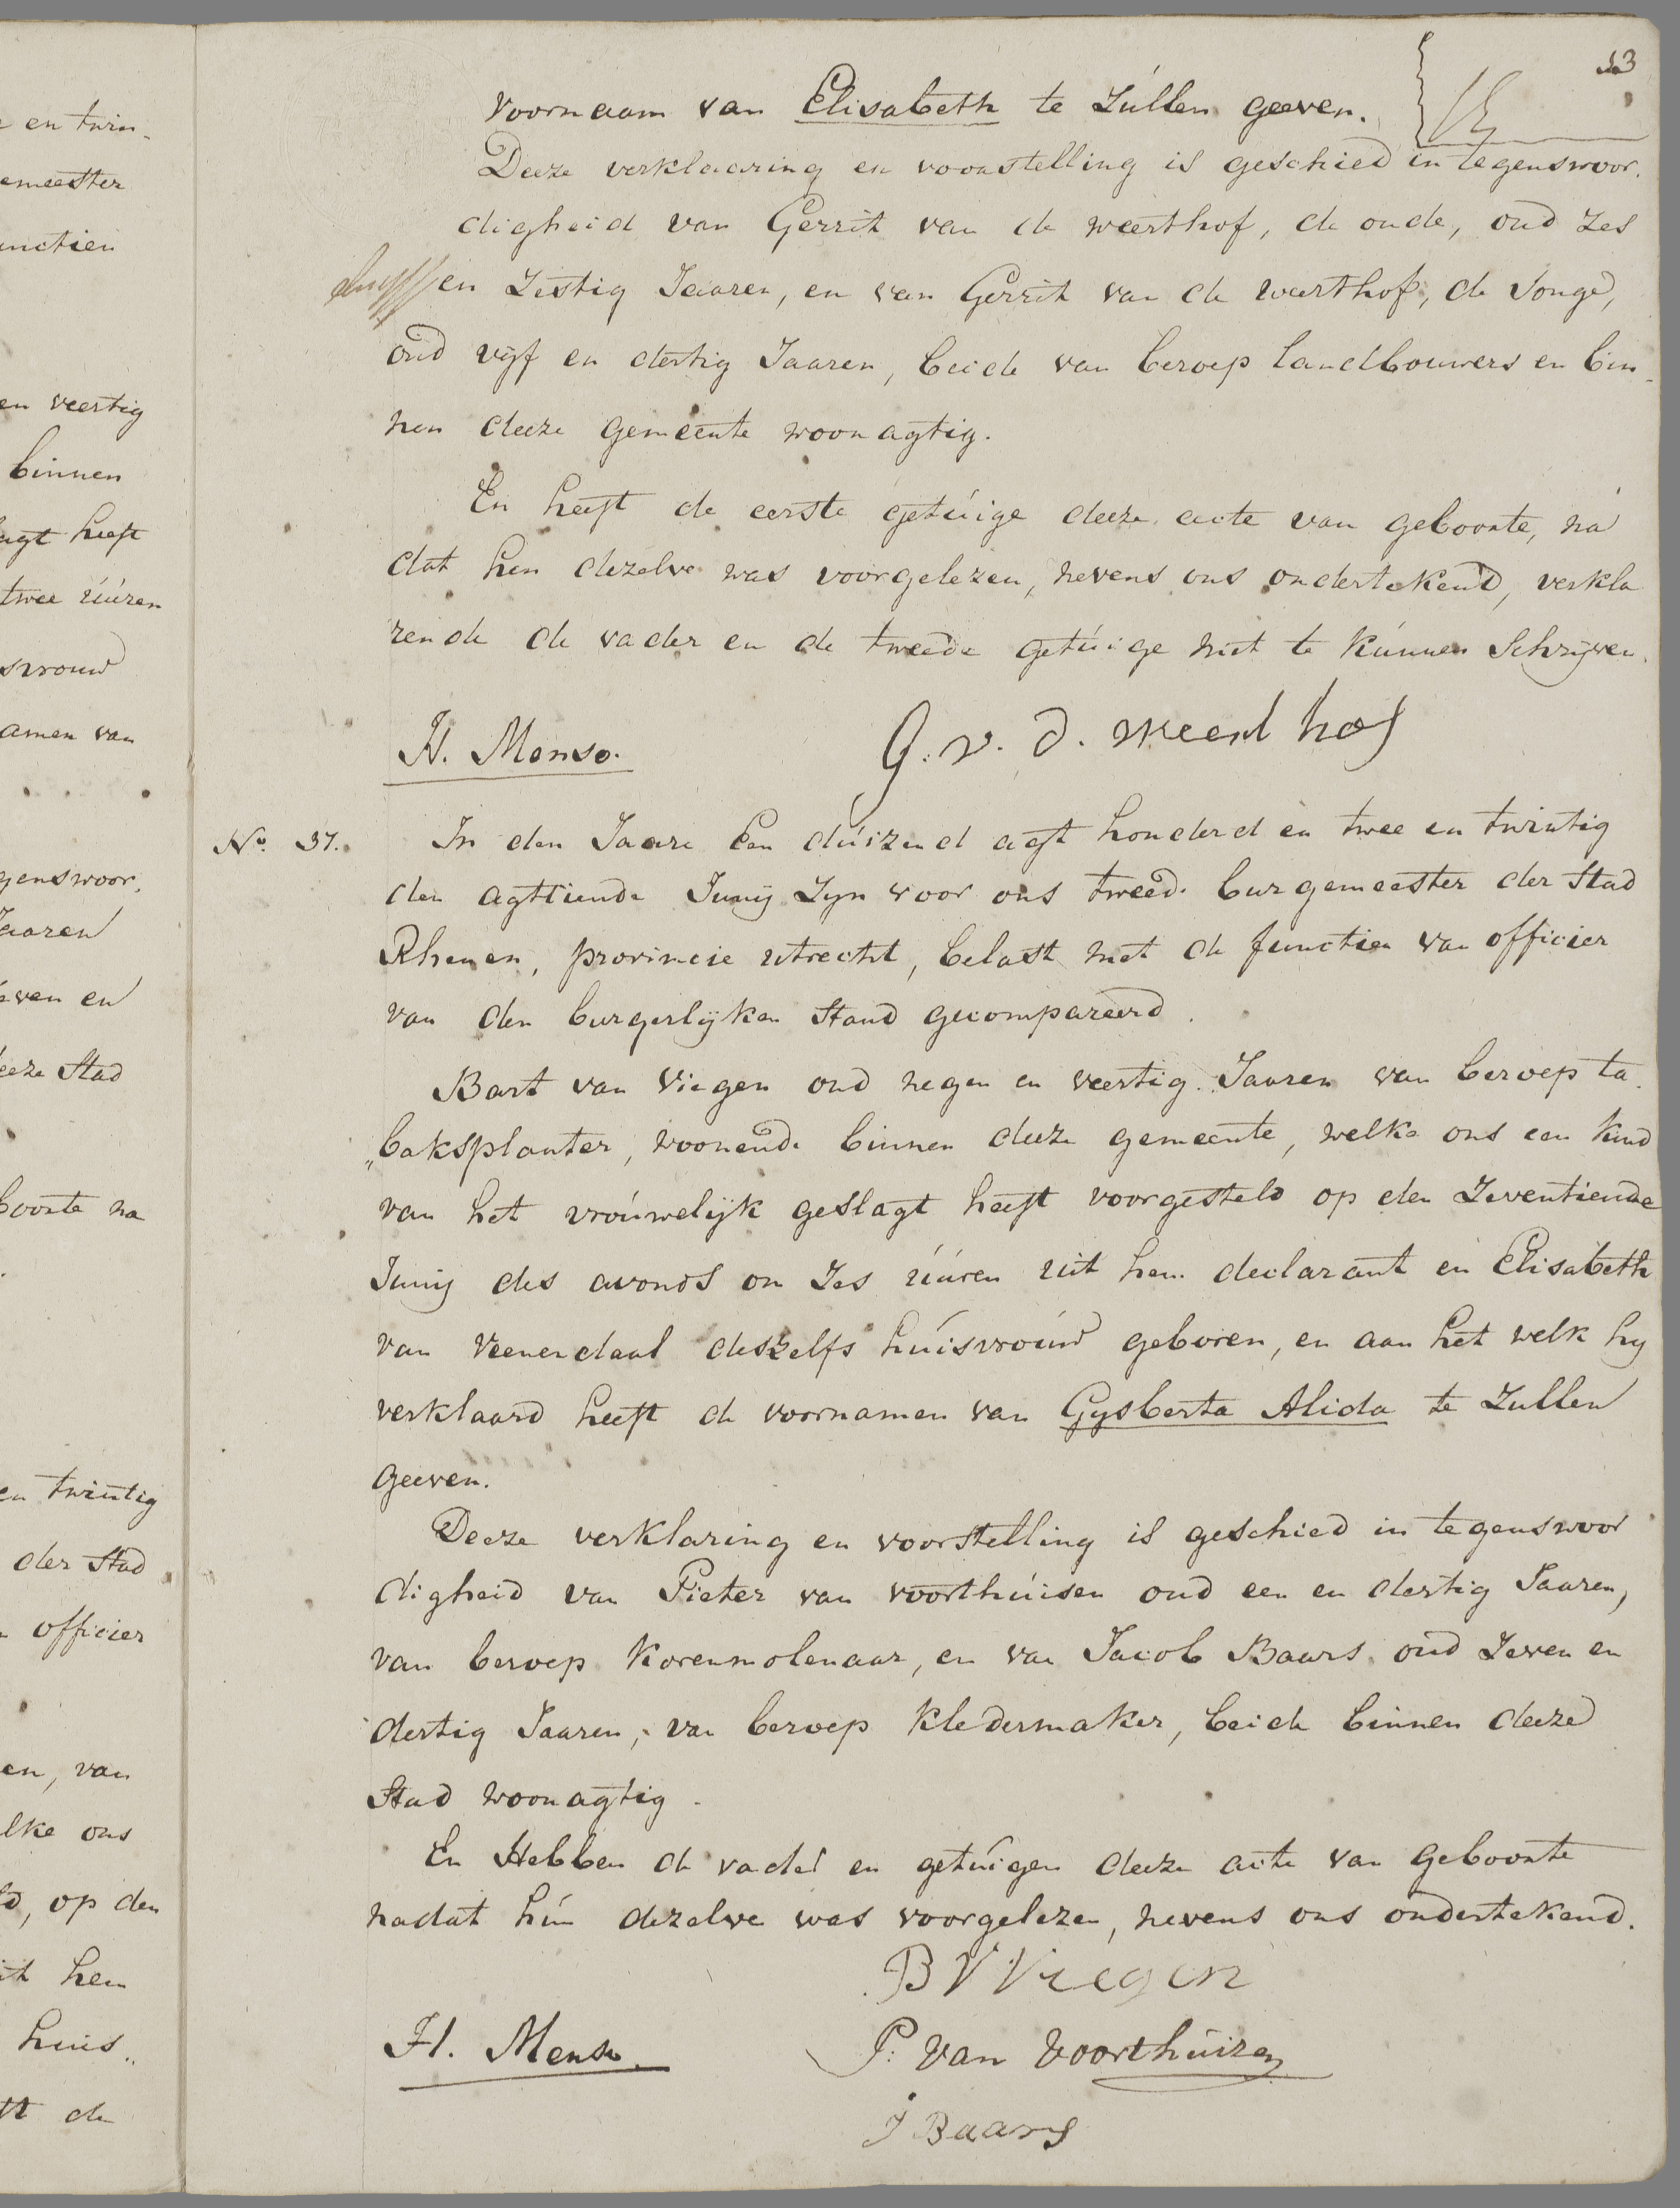 13
voornaam van Elisabeth te Zullen geeven.
Deeze verklaaring en voorstelling is geschied in tegenswoor.
digheid van Gerrit van de weerthof, de oude, oud Zes
en Zestig Jaaren, en van Gerrit van de weerthof, de Jonge,
oud vijf en dertig Jaaren, beide van beroep landbouwers en bin
nen deeze gemeente woonagtig.
En heeft de eerste getúige deeze acte van geboorte, na
dat hen dezelve was voorgelezen, nevens ons ondertekend, verkla
rende de vader en de tweede getúige niet te kúnnen Schrijven.
H. Menso. G. v. d. weerd hof
No. 37. In den Jaare Een dúizend agt honderd en twee en twintig
den agttiende Junij Zyn voor ons tweede burgemeester der Stad
Rhenen, provincie utrecht, belast met de functien van officier
van den burgerlijken Stand gecompareerd.
Bart van Viegen oud negen en veertig Jaaren van beroep ta
„baksplanter, woonende binnen deeze gemeente, welke ons een kind
van het vroúwelijk geslagt heeft voorgesteld op den Zeventiende
Junij des avonds om Zes úúren uit hem declarant en Elisabeth
van Veenendaal deszelfs húisvroúw geboren, en aan het welk hy
verklaard heeft de voornamen van Gysberta Alida te Zullen
geeven.
Deeze verklaring en voorstelling is geschied in tegenswoor
digheid van Pieter van voorthúisen oud een en dertig Jaaren,
van beroep Korenmolenaar, en van Jacob Baars oud Zeven en
dertig Jaaren, van beroep kledermaker, beide binnen deeze
Stad woonagtig.
En Hebben de vader en getúigen deeze acte van geboorte
nadat hún dezelve was voorgelezen, nevens ons ondertekend.
B V Viegen
H. Menso. P. van voorthúizen
J Baars
en twin-
emeester
unctien
en veertig
binnen
agt heeft
twee úúren
svrouw
amen van
genswoor.
Jaaren
even en
eeze Stad
boorte na
en twintig
der Stad
officier
en, van
elke ons
ld, op den
it hem
huis„
tt de